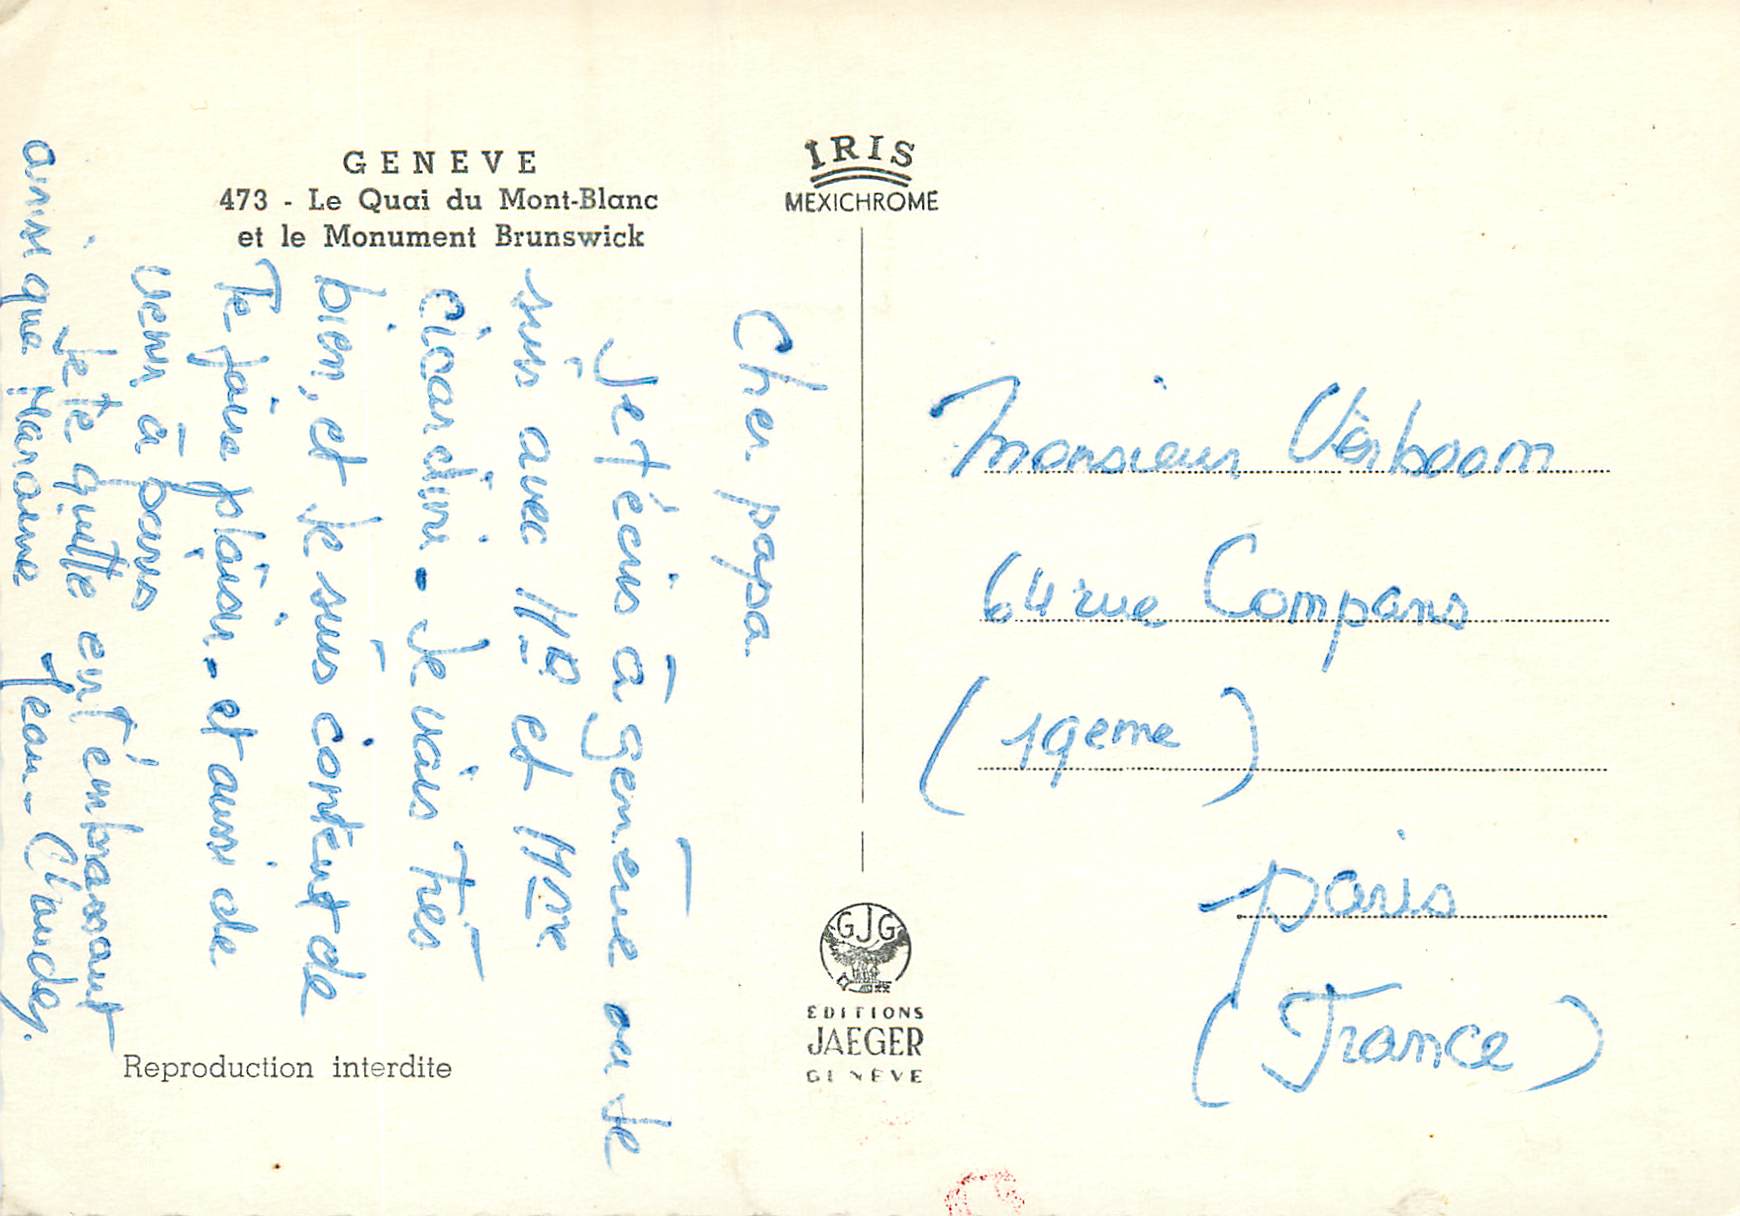 GENEVE
473 - Le Quai du Mont-Blanc
et le Monument Brunswick
IRIS
MEXICHROME
Cher papa
Je t'écris à geneve ou Je
suis avec Mr et Mme
cicardini. Je vais très
bien, et Je suis content de
Te faire plaisir. et aussi de
venir à paris
Je te quitte en t'embrassant
ainsi que Marraine Jean-Claude.
Monsieur Verboom
64 rue Compans
(19eme)
paris
(France)
GJG
EDITIONS
JAEGER
GENEVE
Reproduction interdite